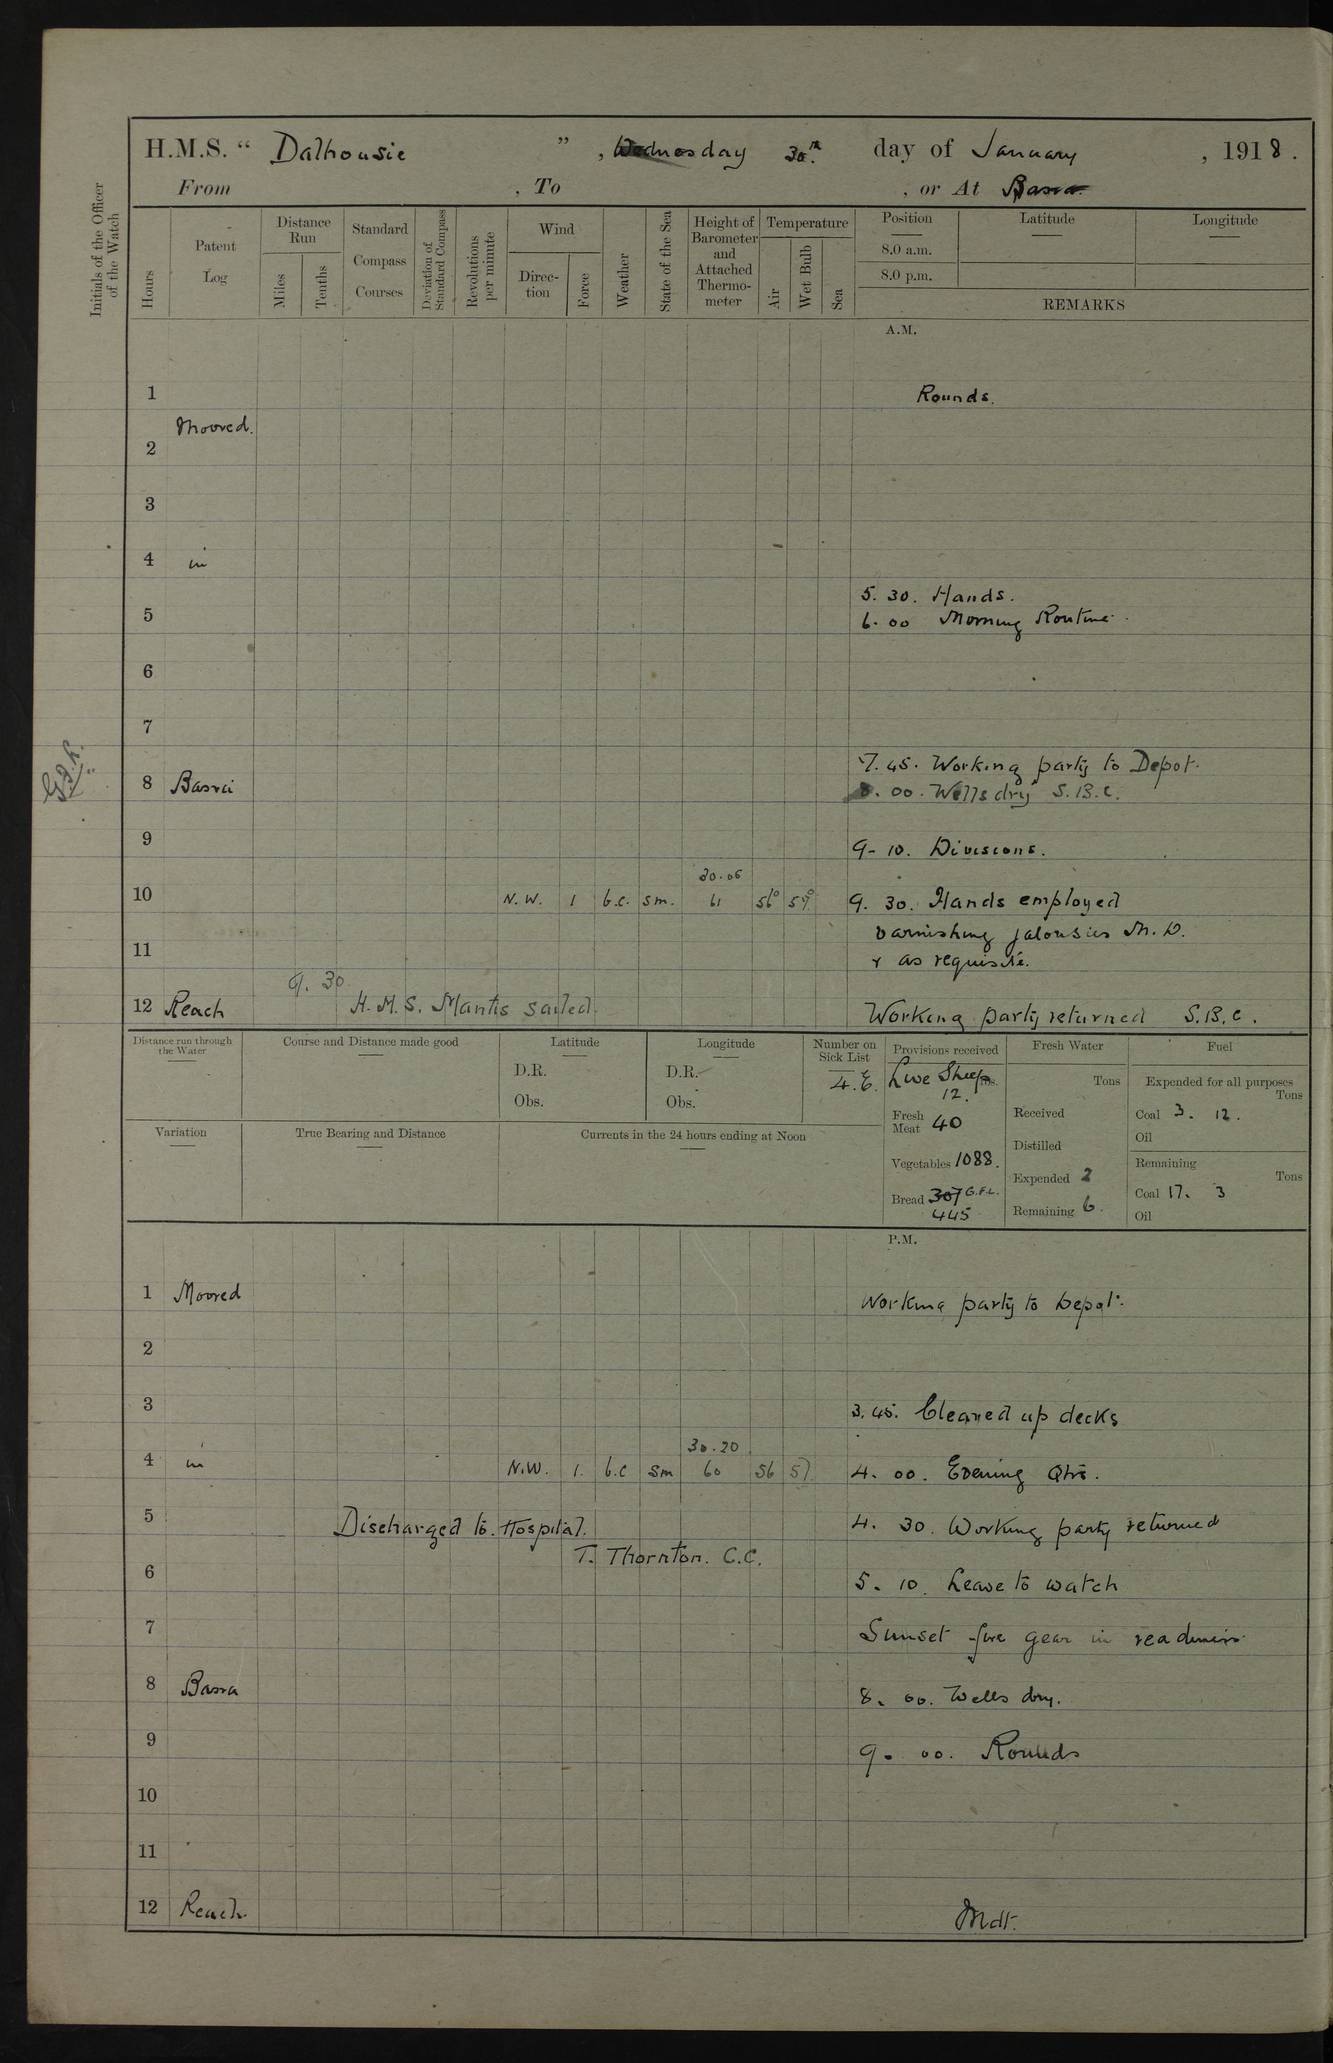 H.M.S. " Dalhousie " , Wednesday 30.th day of January , 1918 .
From , To , or At Basra.
Initials of the Officer of the Watch
Hours
Patent Log
Distance Run
Miles
Tenths
Standard Compass Courses
Deviation of Standard Compass
Revolutions per minute
Wind
Direction
Force
Weather
State of the Sea
Height of Barometer and Attached Thermometer
Temperature
Air
Wet Bulb
Sea
Position Latitude Longitude
8.0 a.m.
8.0 p.m.
REMARKS
A.M.
1 Rounds.
Moored.
2
3
4 in
5. 30. Hands.
5
6. 00 Morning Routine.
6
7
7. 45. Working party to Depot.
8 Basra
8. 00. Wells dry S.B.C.
9
9- 10. Divisions.
30.06
10 N.W. 1 b.c. sm. 61 56° 59° 9. 30. Hands employed
varnishing jalousies M.D.
11
& as requisite.
9. 30
12 Reach H.M.S. Mantis sailed. Working party returned S.B.C.
Distance run through the Water
Course and Distance made good
Latitude
D.R.
Obs.
Longitude
D.R.
Obs.
Number on Sick List
4. E.
Provisions received
Live Sheep lbs.
12.
Fresh Meat 40
Vegetables 1088.
Bread 307 G.F.L.
445
Fresh Water
Tons
Received
Distilled
Expended 2
Remaining 6.
Fuel
Expended for all purposes
Tons
Coal 3. 12.
Oil
Remaining
Tons
Coal 17. 3
Oil
Variation
True Bearing and Distance
Currents in the 24 hours ending at Noon
P.M.
1 Moored Working party to Depot.
2
3 3. 45. Cleaned up decks
30.20
4 in N.W. 1. b.c sm 60 56 57 4. 00. Evening Qtrs.
5 Discharged to Hospital. 4. 30. Working party returned
T. Thornton. C.C.
6 5. 10. Leave to watch
7 Sunset fire gear in readiness
8 Basra 8. 00. Wells dry.
9 9. 00. Rounds
10
11
12 Reach. Mdt.